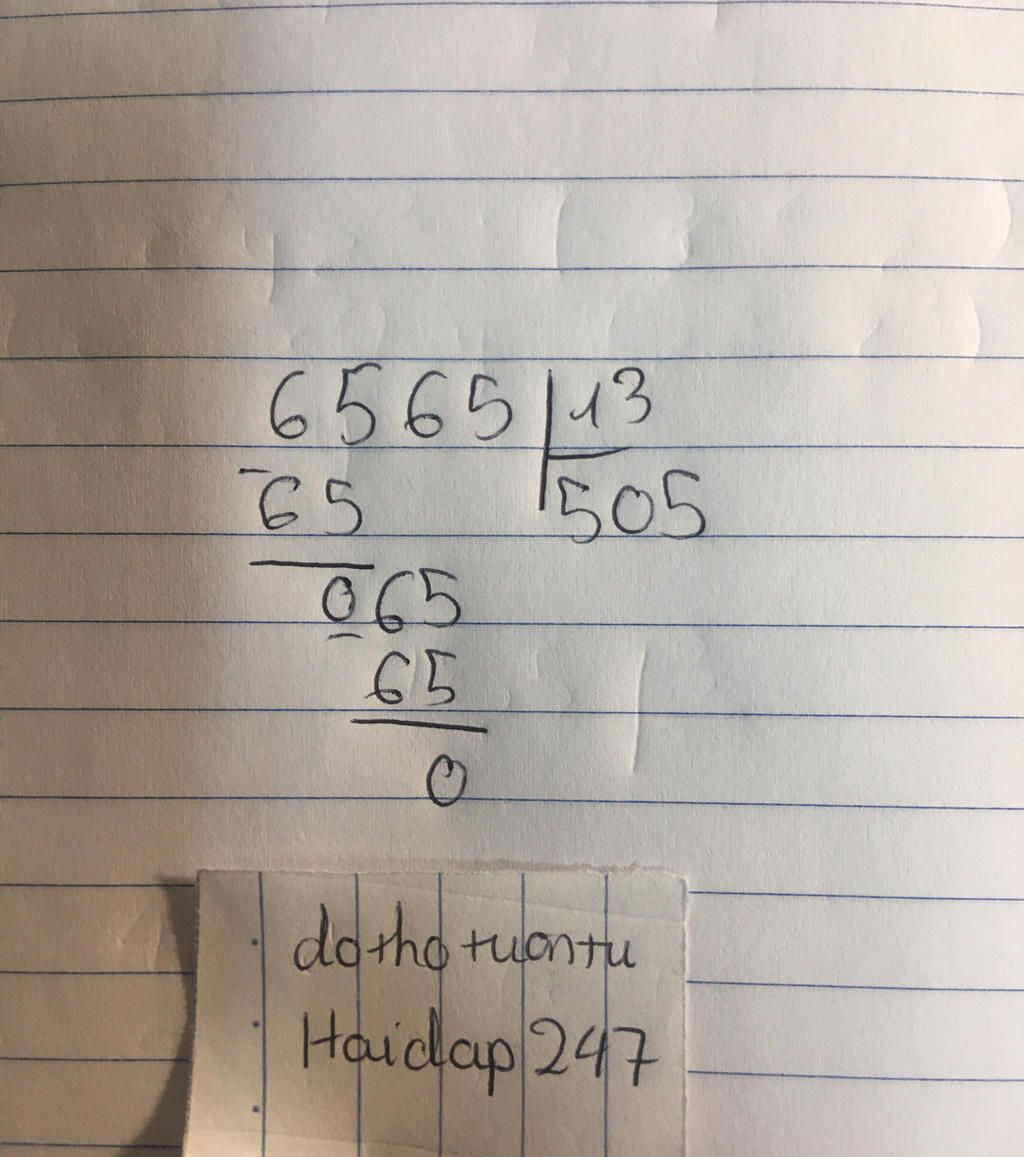 6565 13
65 505
065
65
0
dothotuontu
Hoidap247